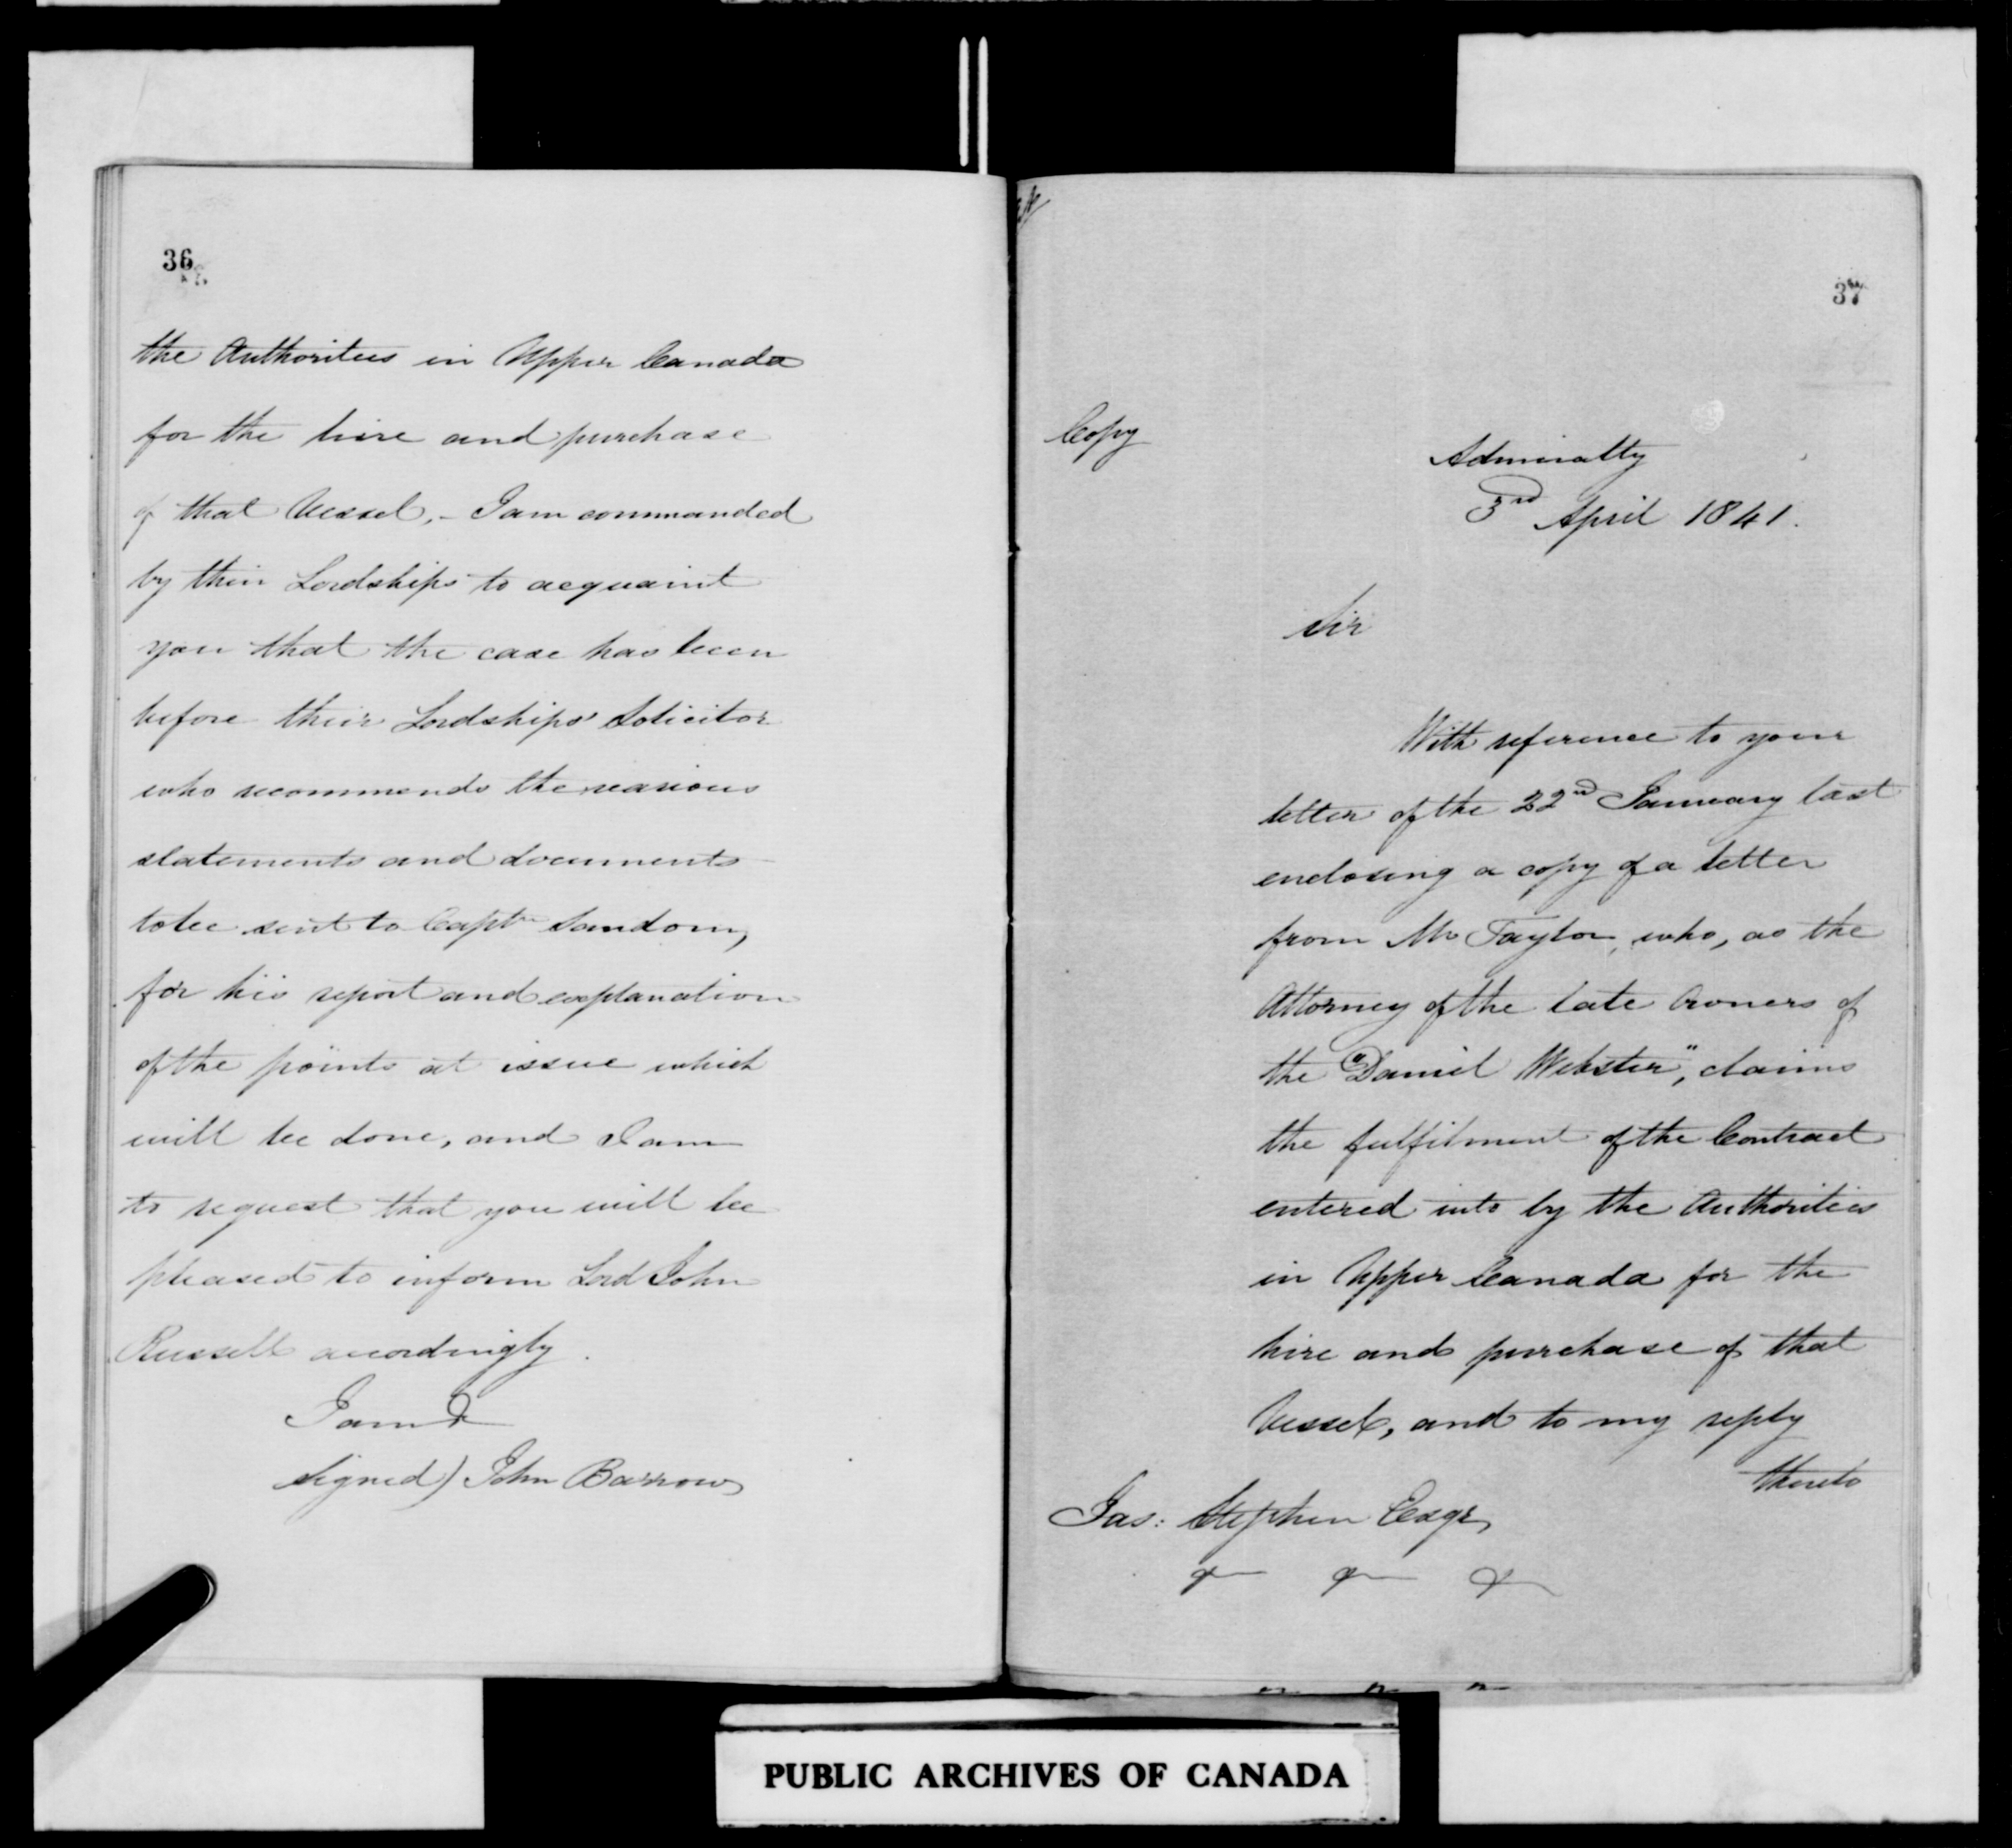 36
the Authorities in Upper Canada
for the hire and purchase
of that Vessel, - I am commanded
by their Lordships to acquaint
you that the case has been
before their Lordships' Solicitor
who recommends the various
statements and documents
to be sent to Captn Sandom,
for his report and explanation
of the points at issue which
will be done, and I am
to request that you will be
pleased to inform Lord John
Russell accordingly.
I am &
Signed) John Barrow
37
Copy
Admiralty
3rd April 1841.
Sir
With reference to your
letter of the 22nd January last
enclosing a copy of a letter
from Mr Taylor, who, as the
Attorney of the late Owners of
the "Daniel Webster", claims
the fulfilment of the Contract
entered into by the Authorities
in Upper Canada for the
hire and purchase of that
Vessel, and to my reply
thereto
Jas: Stephen Esqr,
& & &
PUBLIC ARCHIVES OF CANADA